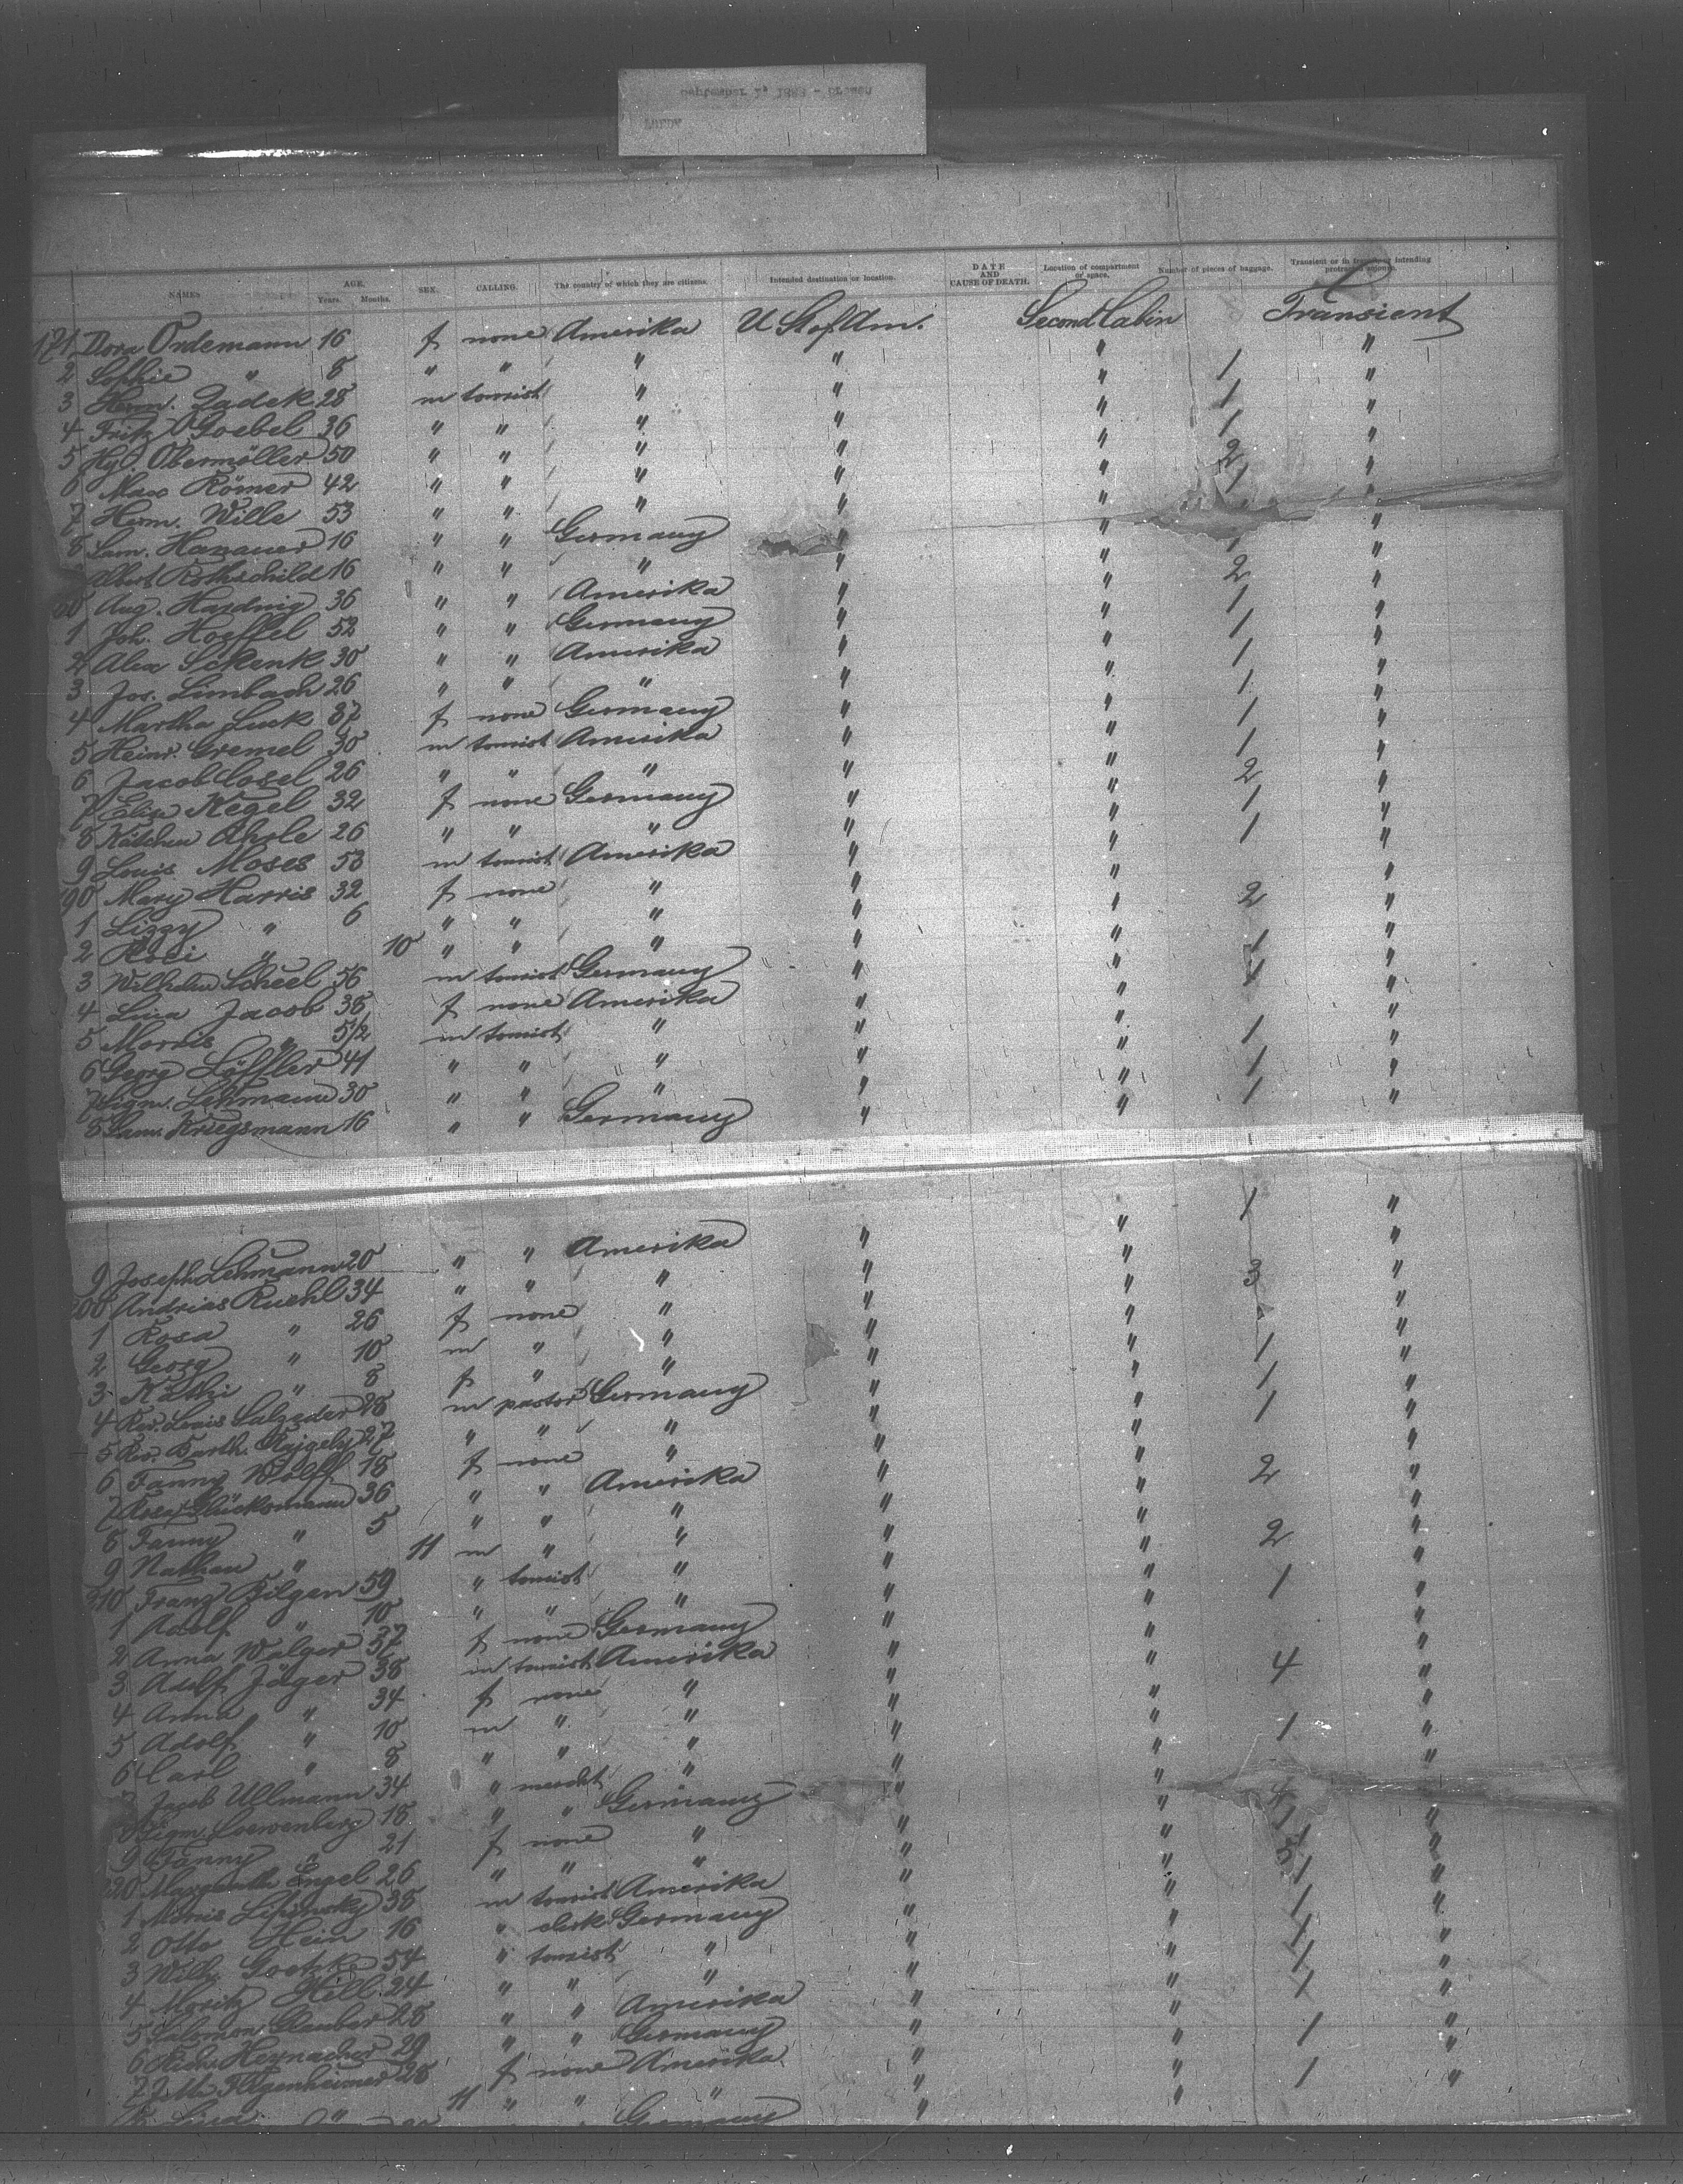 September 1, 1888 - Bremen
NAMES AGE. Years. Months. SEX. CALLING. The country of which they are citizens. Intended destination or location. DATE AND CAUSE OF DEATH. Location of compartment or space. Number of pieces of baggage. Transient or in transit or intending protracted sojourn.
171 Dora Ordemann 16 f none Amerika U St of Am. Second Cabin Transient
2 Sophie " 8 " " " " " 1 "
3 Herm. Zadek 28 m tourist " " " 1 "
4 Fritz Goebel 36 " " " " " 1 "
5 Hy. Obermöller 50 " " " " " 2 "
6 Max Römer 42 " " " " " 1 "
7 Herm. Wille 53 " " " " " "
8 Sam. Hanauer 16 " " Germany " " 1 "
Albert Rothschild 16 " " " " " 2 "
80 Aug. Hardnig 36 " " Amerika " " 1 "
1 Joh. Hoeffel 52 " " Germany " " 1 "
2 Alex Schenk 30 " " Amerika " " 1 "
3 Jos. Limbach 26 " " " " " 1 "
4 Martha Luck 37 f none Germany " " 1 "
5 Heinr. Gremel 30 m tourist Amerika " " 1 "
6 Jacob Cosel 26 " " " " " 2 "
7 Elise Kegel 32 f none Germany " " 1 "
8 Kätchen 26 " " " " " 1 "
9 Louis Moses 53 m tourist Amerika " " "
190 Mary Harris 32 f none " " " 2 "
1 Lizzy " 6 " " " " " "
2 " 10 " " " " " 1 "
3 Wilhelm Scheel 56 m tourist Germany " " 1 "
4 Lina Jacob 38 f none Amerika " " "
5 Morris " 5 1/2 m tourist " " " 1 "
6 Georg Löffler 41 " " " " " 1 "
7 Sigm. Lehmann 30 " " " " " 1 "
8 Sam. Kriegsmann 16 " " Germany " " 1 "
9 Joseph Lehmann 20 " " Amerika " " "
200 Andrias Ruehl 34 " " " " " 3 "
1 Rosa " 26 f none " " " "
2 Georg " 10 m " " " " 1 "
3 Käthi " 8 f " " " " 1 "
4 Rev. Louis Salzeder 28 m pastor Germany " " 1 "
5 Rev. Barth. 27 " " " " " "
6 Fanny Wolff 18 f none " " " 2 "
7 Rosa Glücksmann 36 " " Amerika " " "
8 Fanny " 5 " " " " " 2 "
9 Nathan " 11 m " " " " 1 "
210 Franz Bilgen 59 " tourist " " " "
1 Adolf " 10 " " " " " "
2 Anna Walger 37 f none Germany " " 4 "
3 Adolf Jäger 38 m tourist Amerika " " "
4 Anna " 34 f none " " " 1 "
5 Adolf " 10 m " " " " "
6 Carl " 8 " " " " " 4 "
7 Jacob Ullmann 34 " mercht " " " 1 "
8 Sigm. Loewenberg 18 " " Germany " " 3 "
9 Fanny " 21 f none " " " 1 "
220 Margarethe Engel 26 " " " " " 1 "
1 Morris Lipinsky 38 m tourist Amerika " " 1 "
2 Otto Hein 16 " clerk Germany " " 1 "
3 Wilh. Goetzke 54 " tourist " " " 1 "
4 Moritz Hill 24 " " " " " "
5 Salomon Glauber 28 " " Amerika " " 1 "
6 Heynacher 29 " " Germany " " 1 "
7 28 f none Amerika " " "
8 Lina " 11 " " " "
Germany